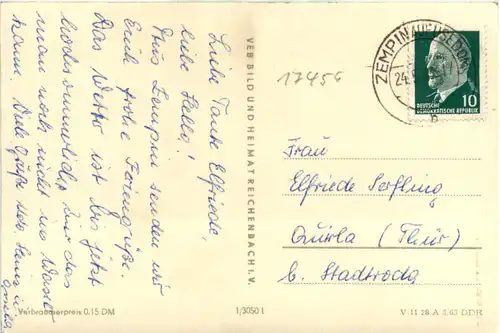 Liebe Tante Elfriede,
liebe Hella!
Aus Zempin senden wir
Euch frohe Feriengrüße.
Das Wetter ist bis jetzt
hochsommerlich, nur das
man noch nicht ins Wasser
kann. Viele Grüße
VEB BILD UND HEIMAT REICHENBACH i. V.
17456
ZEMPIN AUF USEDOM
24.
b
10
DEUTSCHE
DEMOKRATISCHE REPUBLIK
Frau
Elfriede Serfling
Quirla (Thür)
b. Stadtroda
Verbraucherpreis 0,15 DM
1/3050 t
V 11 28 A 5/63 DDR